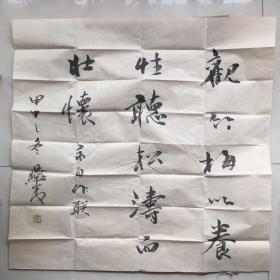 觀竹梅以養
性聽松濤而
壯懷
录自作联
甲申之冬